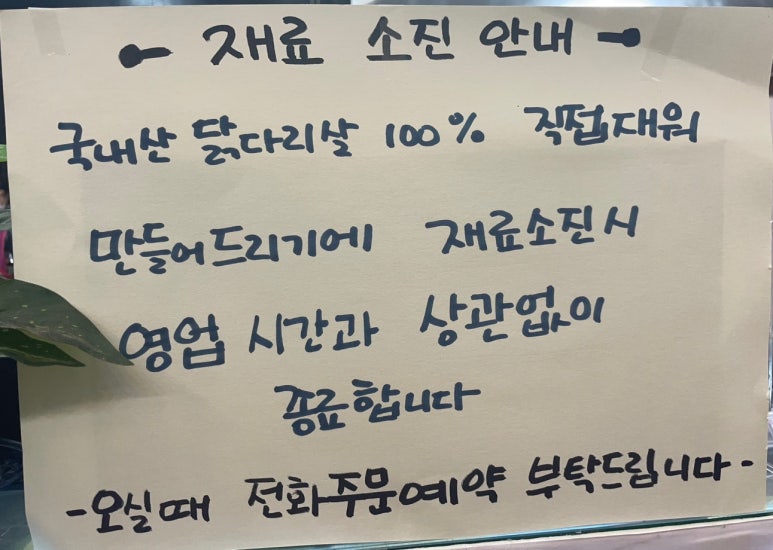 재료 소진 안내
국내산 닭다리살 100% 직접재워
만들어드리기에 재료소진시
영업 시간과 상관없이
종료합니다
-오실때 전화주문예약 부탁드립니다-